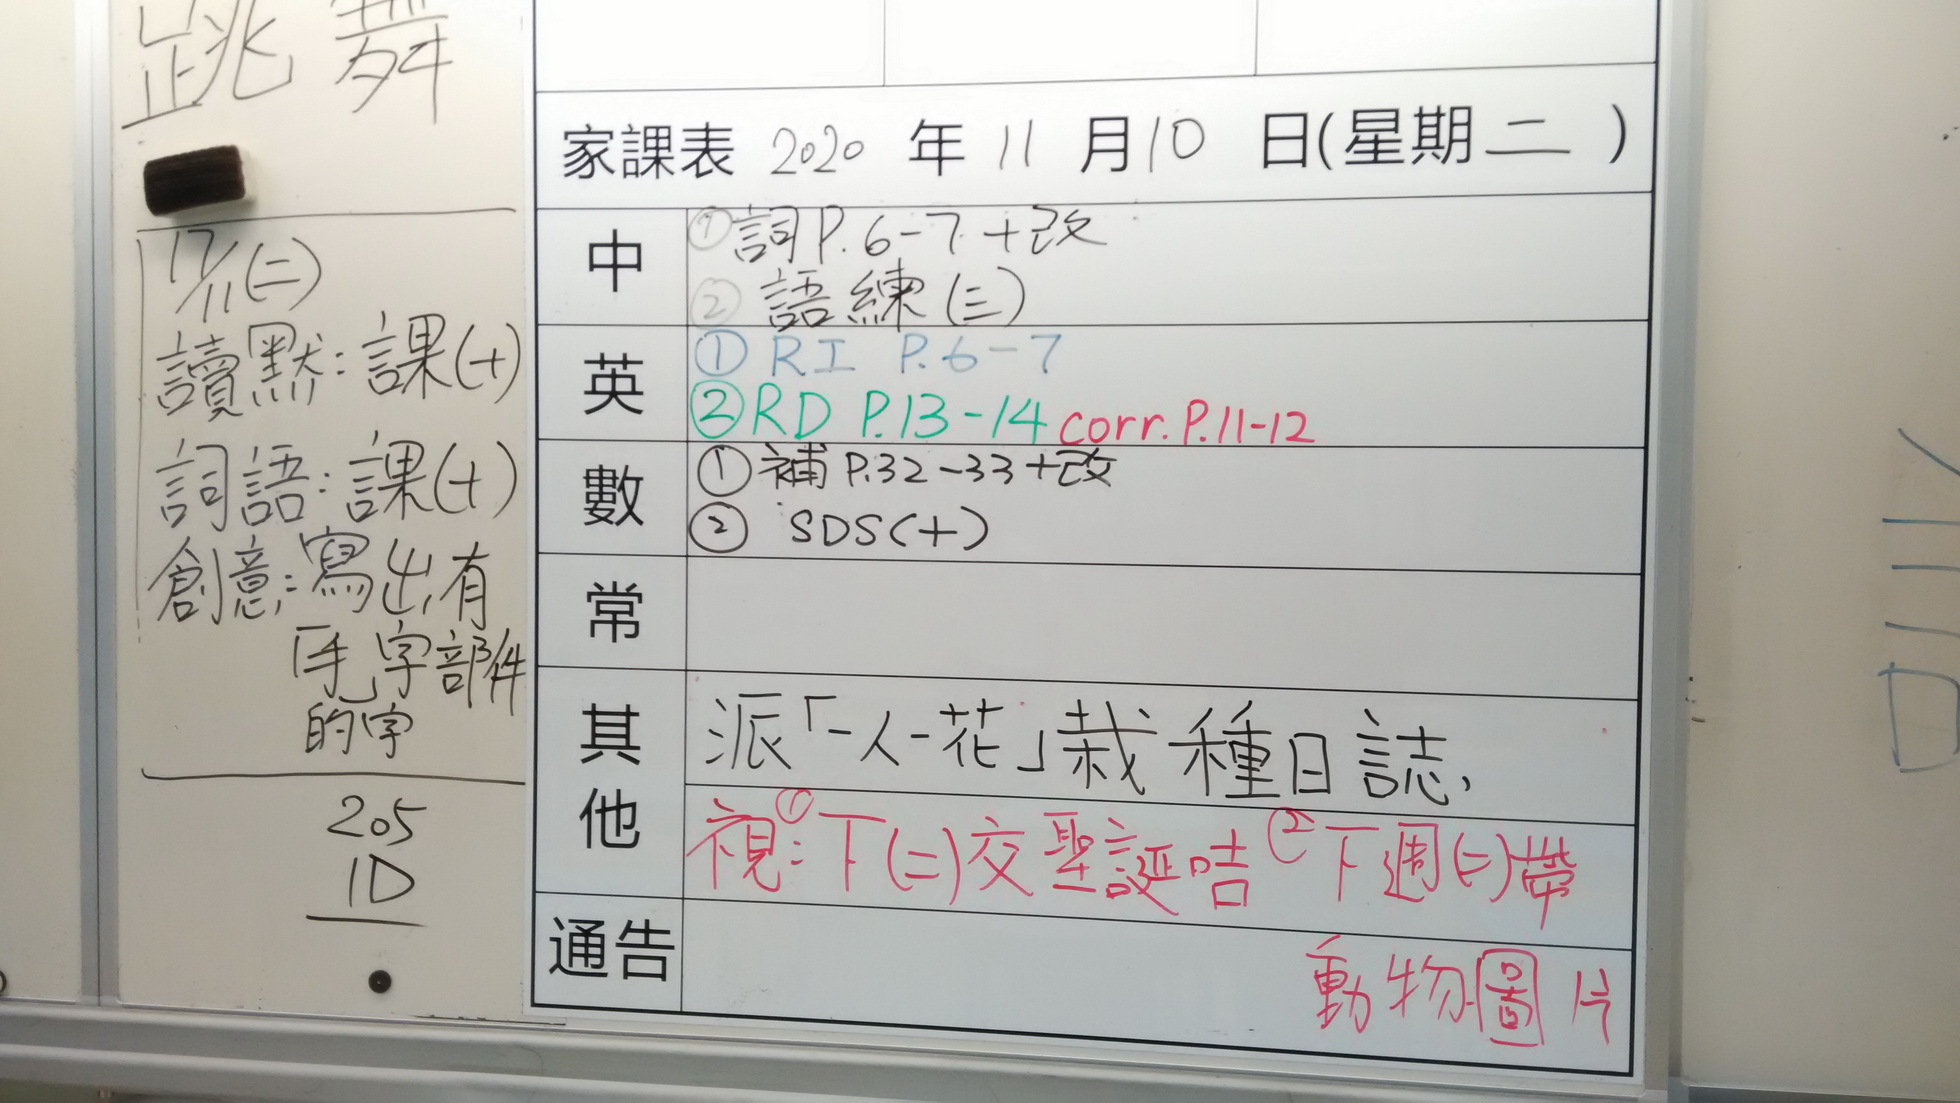 跳舞
17/11(二)
讀默:課(十)
詞語:課(十)
創意:寫出有
「手」字部件
的字
205
1D
家課表 2020 年 11 月 10 日(星期二)
中
①詞P.6-7+改
② 語練(三)
英
① RI P.6-7
②RD P.13-14 corr.P.11-12
數
①補P.32-33+改
② SDS(十)
常
其他
派「一人一花」栽種日誌,
視:①下(二)交聖誕咭 ②下週(二)帶
動物圖片
通告